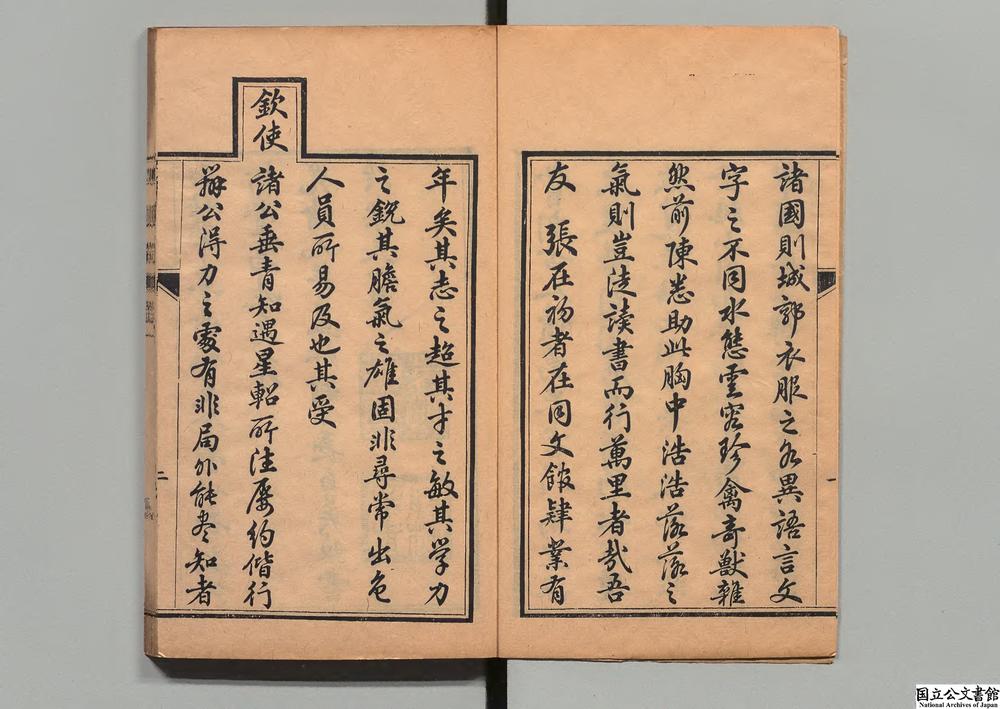 諸國則城郭衣服之各異語言文
字之不同水態雲容珍禽奇獸雜
然前陳悉助此胸中浩浩落落之
氣則豈徒讀書而行萬里者哉吾
友 張在初者在同文館肄業有
年矣其志之超其才之敏其學力
之銳其膽氣之雄固非尋常出色
人員所易及也其受
欽使
諸公垂青知遇星軺所注屢約偕行
辦公得力之處有非局外能盡知者
一
二
国立公文書館
National Archives of Japan